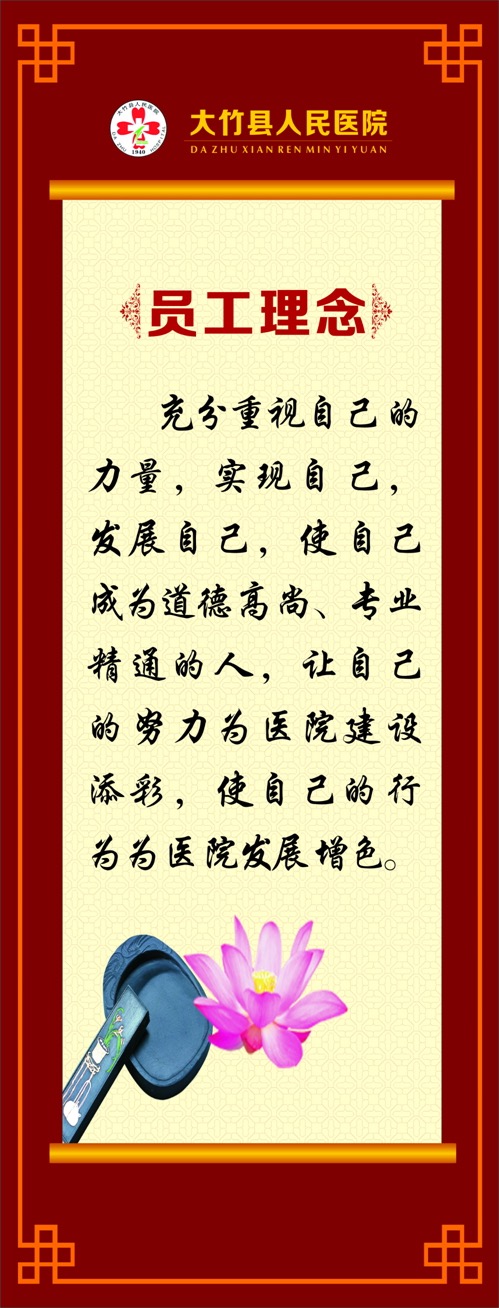 大竹县人民医院
DA ZHU XIAN REN MIN YI YUAN
大竹县人民医院
DA ZHU HOSPITAL
1940
员工理念
充分重视自己的
力量，实现自己，
发展自己，使自己
成为道德高尚、专业
精通的人，让自己
的努力为医院建设
添彩，使自己的行
为为医院发展增色。